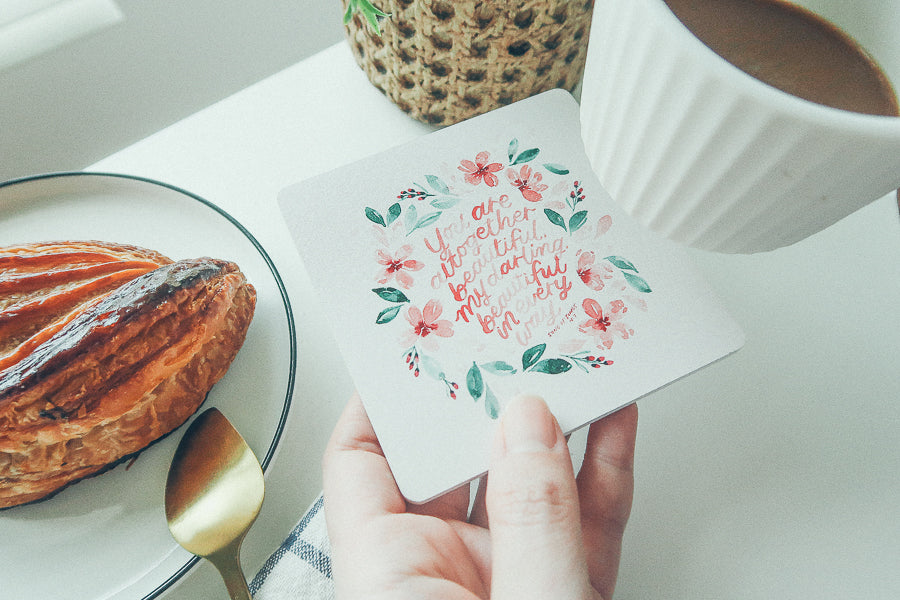 You are
altogether
beautiful,
my darling,
beautiful
in every
way.
SONG OF SONGS
4:7